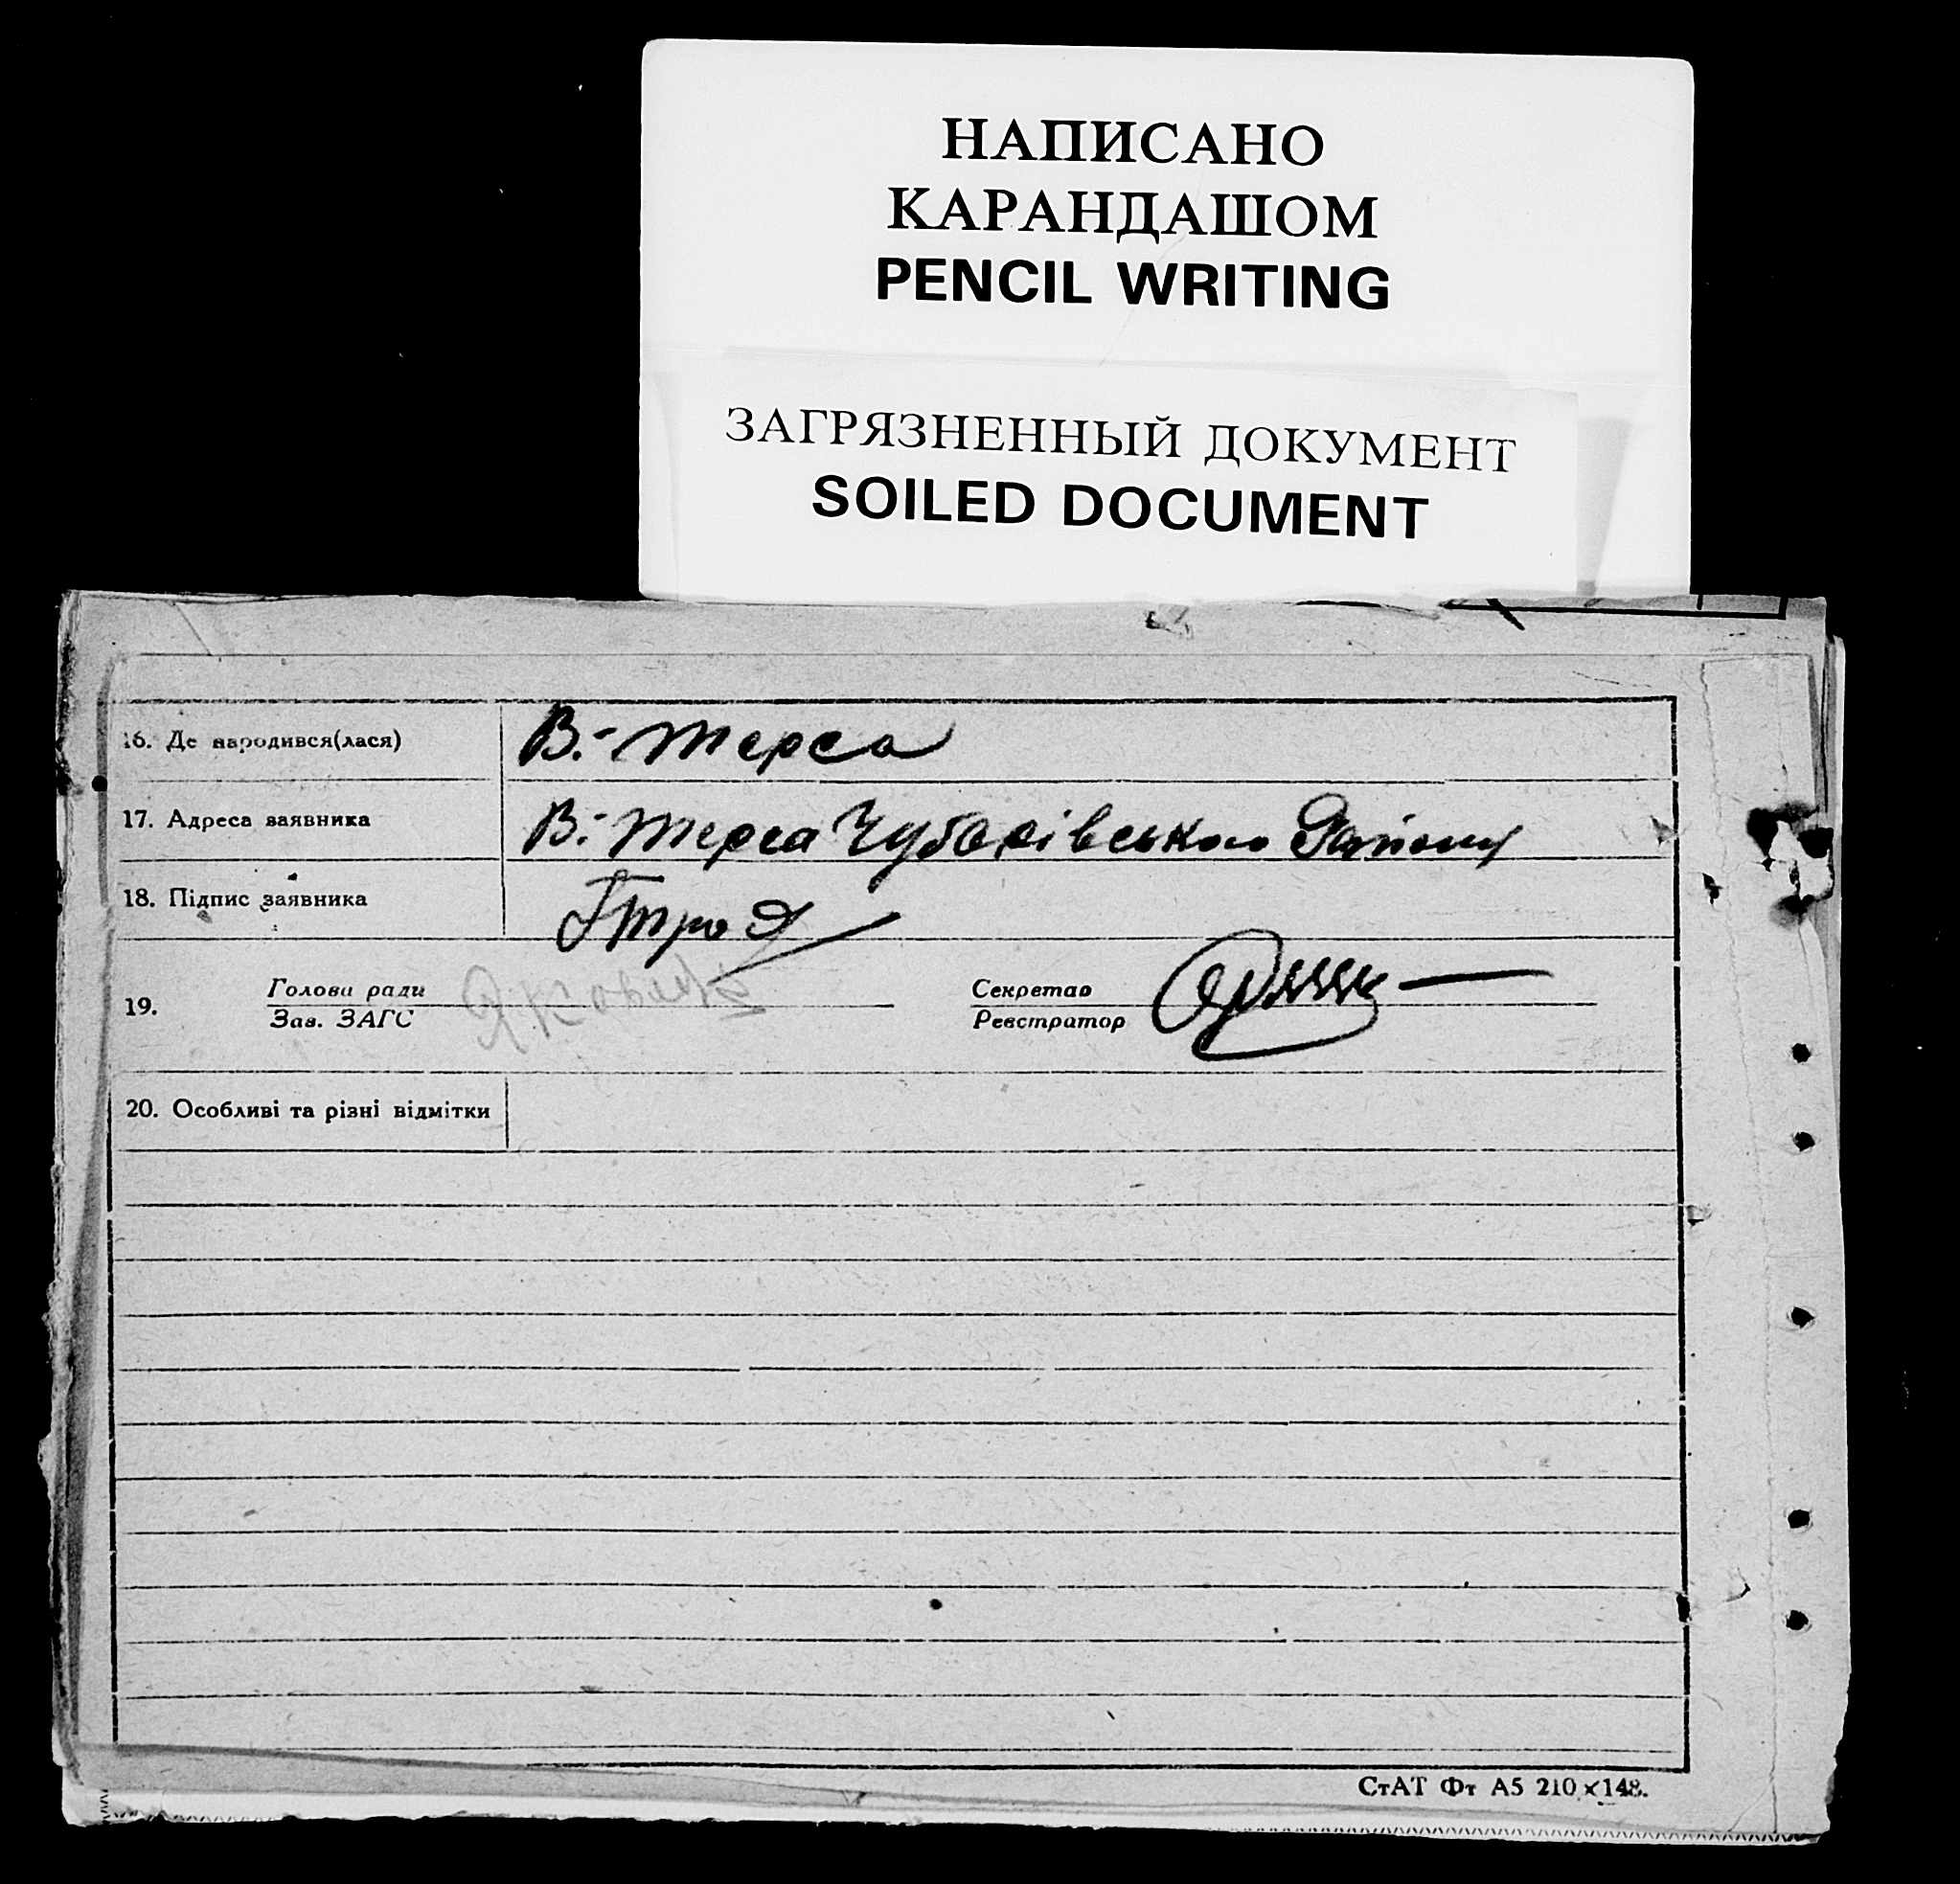 НАПИСАНО
КАРАНДАШОМ
PENCIL WRITING
ЗАГРЯЗНЕННЫЙ ДОКУМЕНТ
SOILED DOCUMENT
16. Де народився(лася) В.-Терса
17. Адреса заявника В.-Терса Чубарівського Району
18. Підпис заявника
19. Голова ради Секретар
Зав. ЗАГС Реєстратор
20. Особливі та різні відмітки
СтАТ Фт А5 210×148.